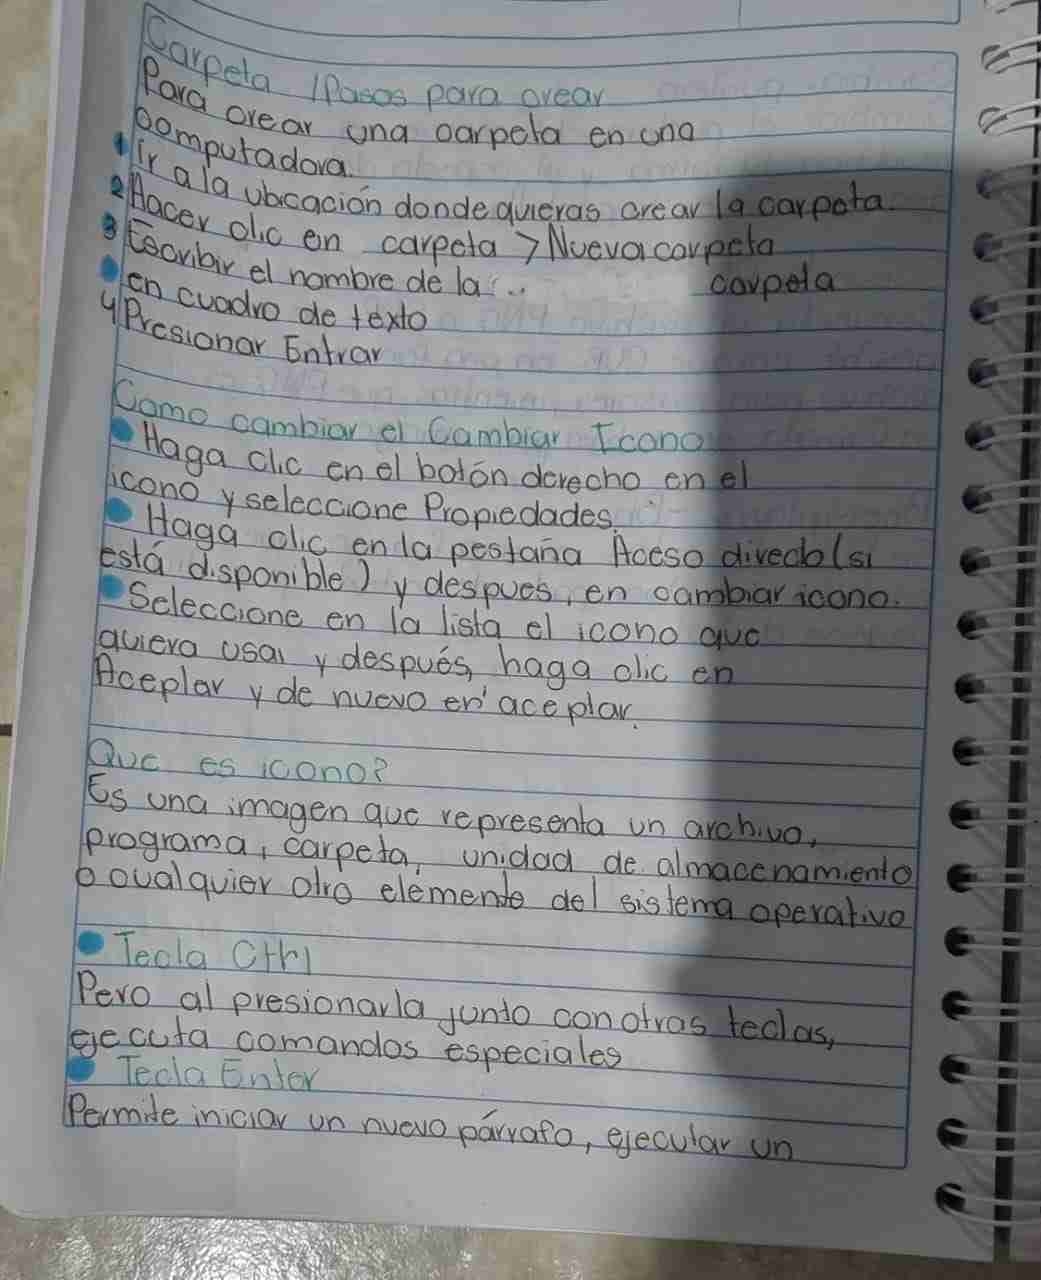 Carpeta /Pasos para crear
Para crear una carpeta en una
computadora.
1 Ir a la ubicación donde quieras crear la carpeta.
2 Hacer clic en carpeta > Nueva carpeta
3 Escribir el nombre de la carpeta
en cuadro de texto
4 Presionar Entrar
Como cambiar el Cambiar Icono
Haga clic en el botón derecho en el
icono y seleccione Propiedades.
Haga clic en la pestaña Acceso directo (si
está disponible) y despues, en cambiar icono.
Seleccione en la lista el icono que
quiera usar y después, haga clic en
Aceptar y de nuevo en aceptar.
Que es icono?
Es una imagen que representa un archivo,
programa, carpeta, unidad de almacenamiento
o cualquier otro elemento del sistema operativo
Tecla Ctrl
Pero al presionarla junto con otras teclas,
ejecuta comandos especiales
Tecla Enter
Permite iniciar un nuevo párrafo, ejecutar un